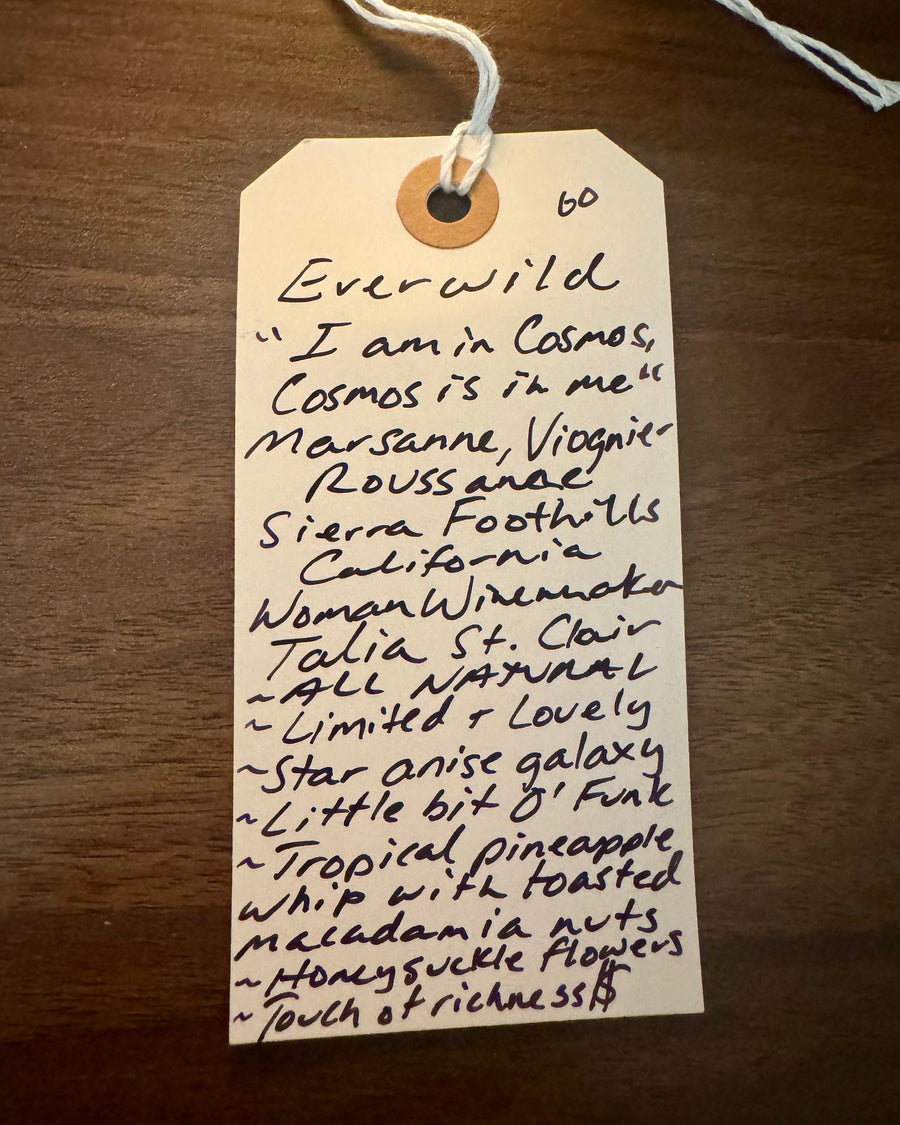 60
Everwild
"I am in Cosmos,
Cosmos is in me"
Marsanne, Viognier
Roussanne
Sierra Foothills
California
Woman Winemaker
Talia St. Clair
~ALL NATURAL
~Limited + Lovely
~Star anise galaxy
~Little bit O' Funk
~Tropical pineapple
whip with toasted
macadamia nuts
~Honeysuckle flowers
~Touch of richness$